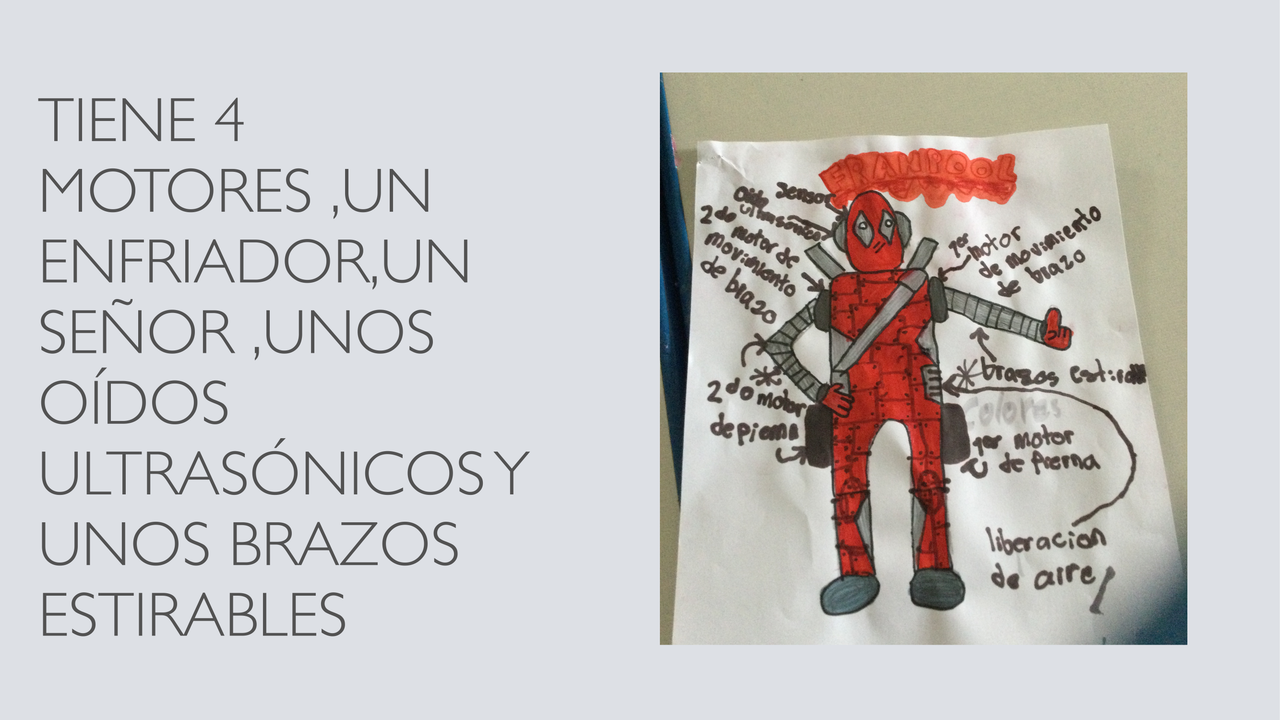 TIENE 4
MOTORES ,UN
ENFRIADOR,UN
SEÑOR ,UNOS
OÍDOS
ULTRASÓNICOS Y
UNOS BRAZOS
ESTIRABLES
FRANPOOL
Sensor
Oido
ultrasónico
2do motor de
movimiento
de brazo
1er motor
de movimiento
de brazo
brazos
2do motor
de pierna
colores
1er motor
de pierna
liberacion
de aire